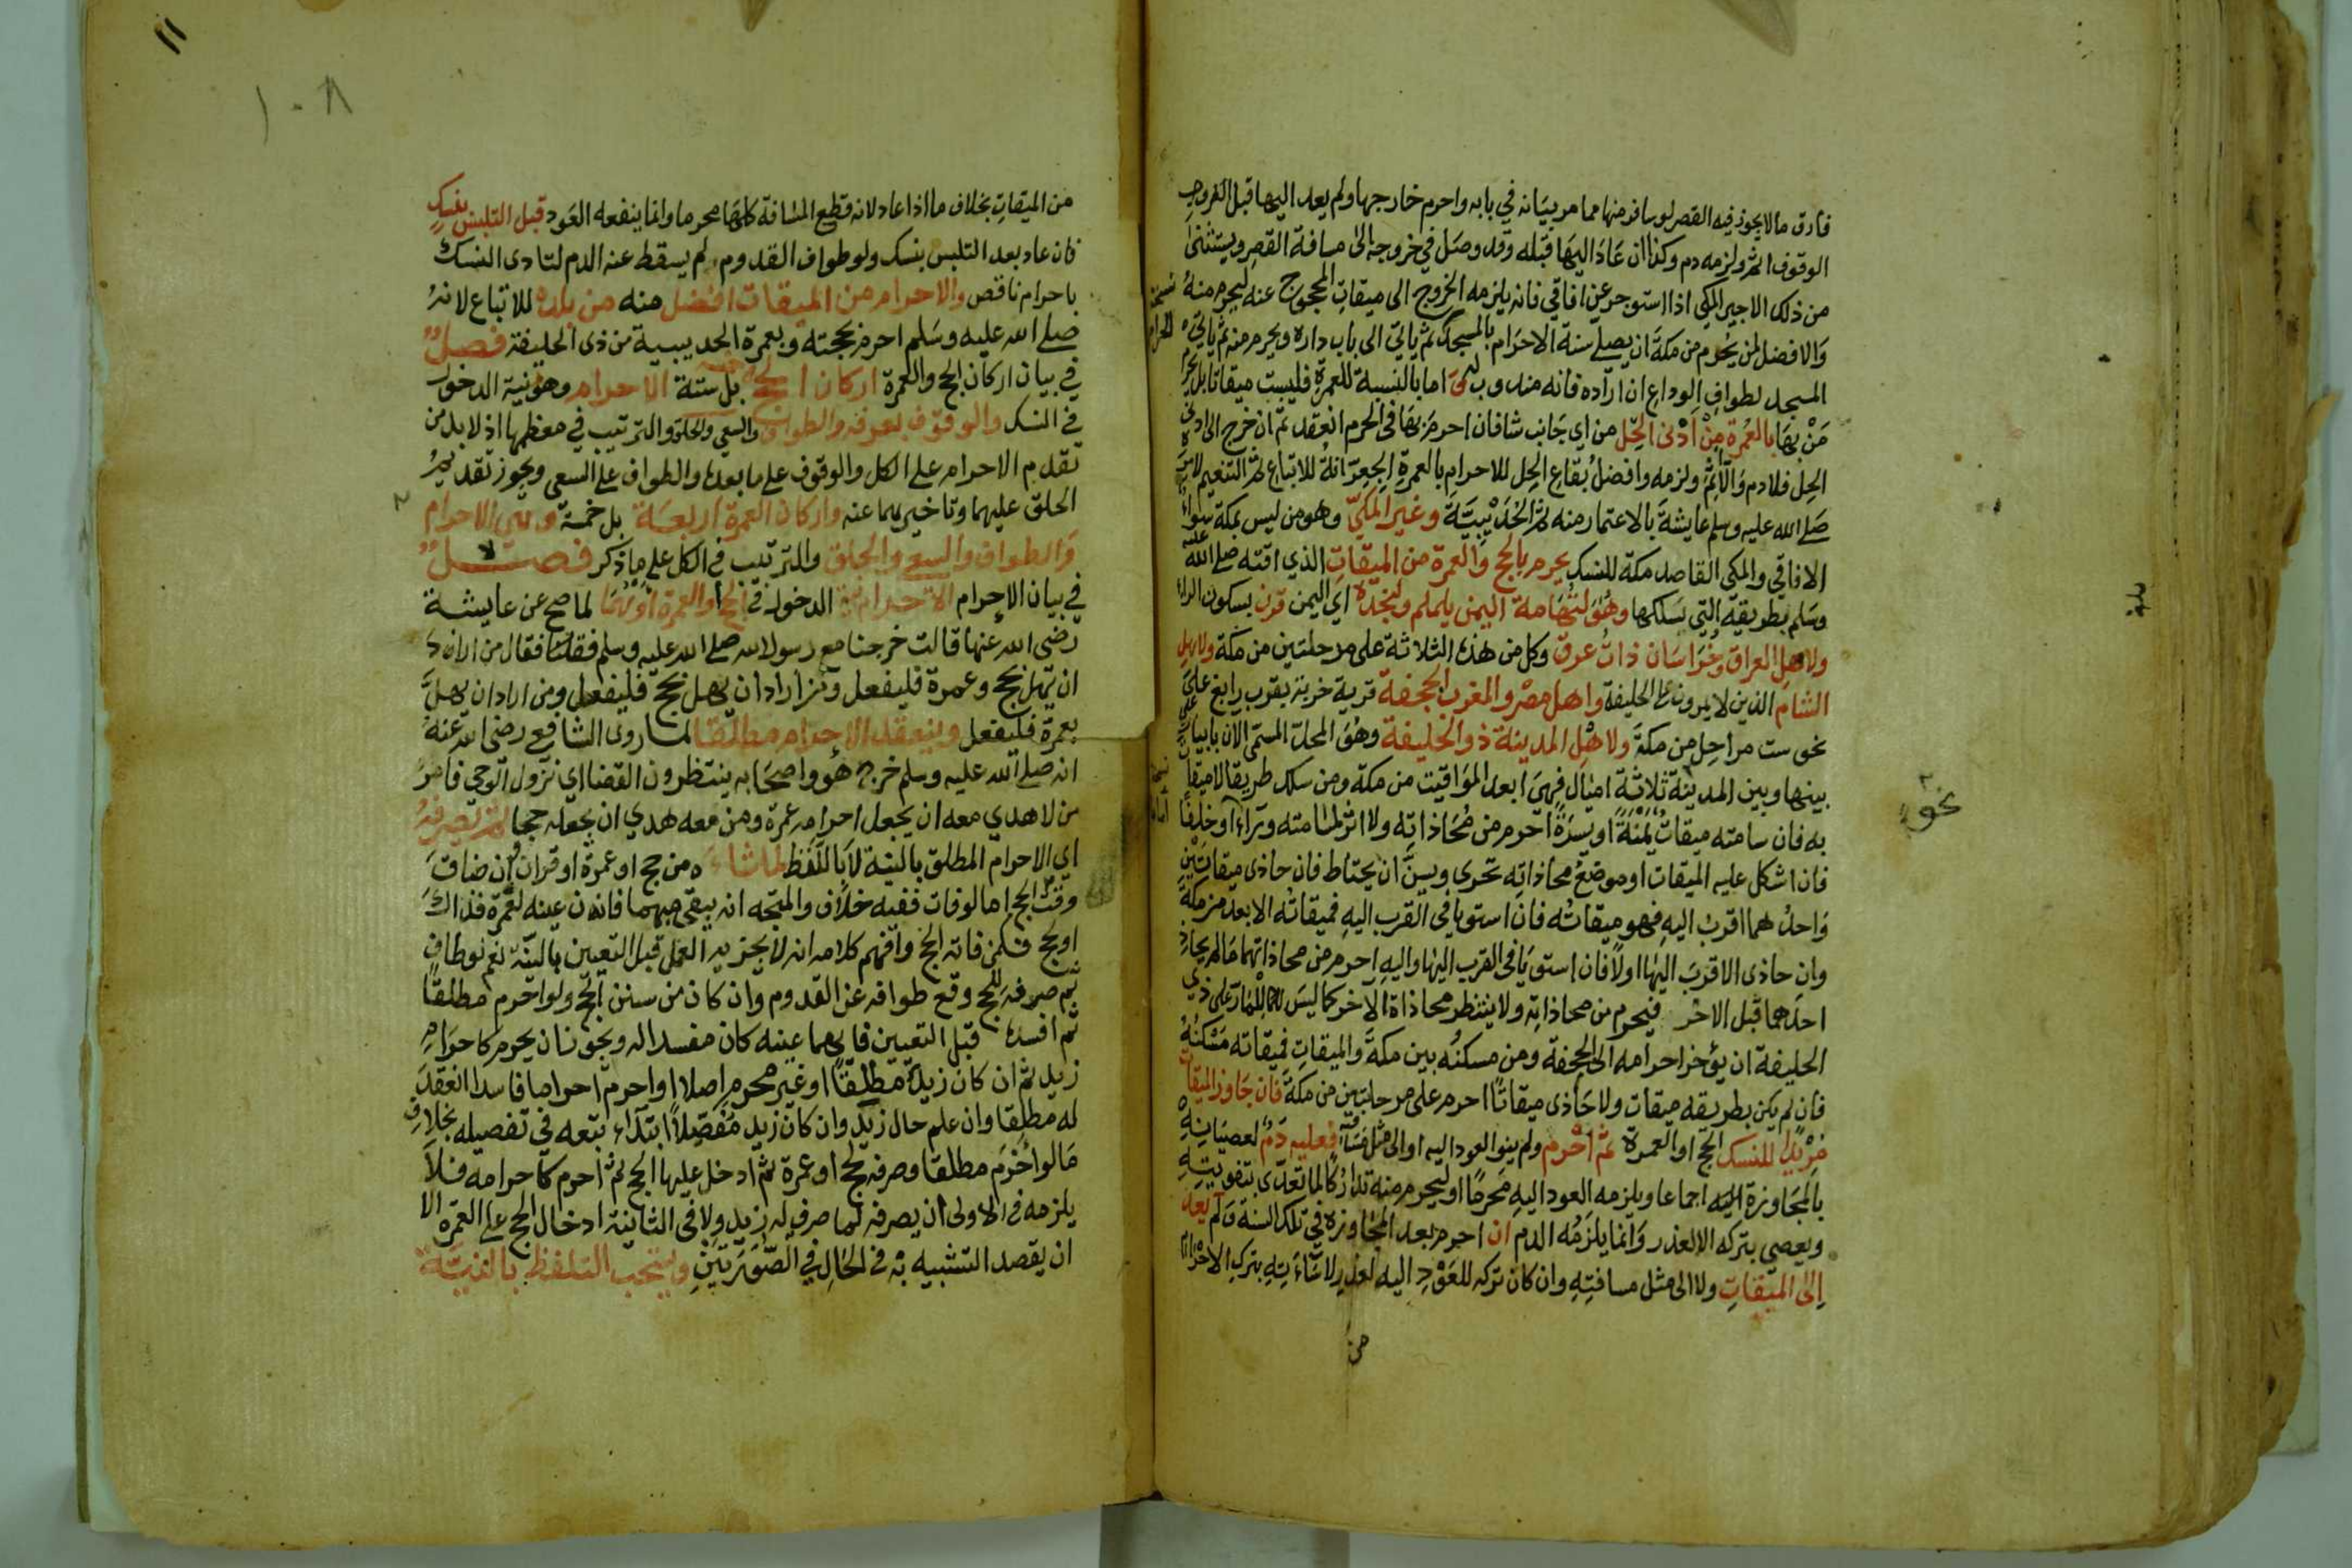 فارق مالا يجوز فيه القصر لو سافر منها مما مر بيانه في بابه واحرم خارجها ولم يعد اليها قبل
الوقوف اثم ولزمه دم وكذا ان عاد اليها قبله وقد وصل في خروجه الى مسافة القصر ويستثنى
من ذلك الاجير المكي اذا استوجر عن افاقي فانه يلزمه الخروج الى ميقات المحجوج عنه ليحرم منه
والافضل لمن يحرم من مكة ان يصلي سنة الاحرام بالمسجد ثم ياتي الى باب داره ويحرم منه ثم ياتي
المسجد لطواف الوداع ان اراده فانه مندوب اما بالنسبة للعمرة فليست ميقاتا بل يحرم
من بها بالعمرة من ادنى الحل من اي جانب شا فان احرم بها في الحرم انعقد ثم ان خرج الى ادنى
الحل فلا دم والا اثم ولزمه وافضل بقاع الحل للاحرام بالعمرة الجعرانة للاتباع ثم التنعيم
صلى الله عليه وسلم عايشة بالاعتمار منه ثم الحديبية وغير المكي وهو من ليس بمكة سواء
الافاقي والمكي القاصد مكة للنسك يحرم بالحج والعمرة من الميقات الذي اقته صلى الله عليه
وسلم بطريقه التي يسلكها وهو لتهامة اليمن يلملم ولنجده اي اليمن قرن بسكون الراء
ولاهل العراق وخراسان ذات عرق وكل من هذه الثلاثة على مرحلتين من مكة ولاهل
الشام الذين لا يمرون الحليفة واهل مصر والمغرب الجحفة قرية خربة بقرب رابغ على
نحو ست مراحل من مكة ولاهل المدينة ذو الحليفة وهو المحل المسمى الان بابيار علي
بينها وبين المدينة ثلاثة اميال فهي ابعد المواقيت من مكة ومن سلك طريقا لا ميقات
به فان سامته ميقات يمنة او يسرة احرم من محاذاته ولا اثر لمسامتته وراء او خلفا
فان اشكل عليه الميقات او موضع محاذاته تحرى ويسن ان يحتاط فان حاذى ميقاتين
واحدهما اقرب اليه فهو ميقاته فان استويا في القرب اليه فميقاته الابعد من مكة
وان حاذى الاقرب اليها اولا فان استويا في القرب اليها واليه احرم من محاذاتهما مالم يحاذ
احدهما قبل الاخر فيحرم من محاذاته ولا ينتظر محاذاة الاخر كما ليس للمار على ذي
الحليفة ان يؤخر احرامه الى الجحفة ومن مسكنه بين مكة والميقات فميقاته مسكنه
فان لم يكن بطريقه ميقات ولا حاذى ميقاتا احرم على مرحلتين من مكة فان جاوز الميقات
مريدا للنسك الحج او العمرة ثم احرم ولم ينو العود اليه او الى مثل مسافته فعليه دم لعصيانه
بالمجاوزة اجماعا ويلزمه العود اليه محرما او ليحرم منه تداركا لما تعدى بتفويته
ويعصي بتركه الا لعذر وانما يلزمه الدم ان احرم بعد المجاوزه في تلك السنة ولم يعد
الى الميقات ولا الى مثل مسافته وان كان تركه للعود اليه لعذر لاساءته بترك الاحرام
من
نسخة
نحو
١٠٨
١١
من الميقات بخلاف ما اذا عاد لانه قطع المسافة كلها محرما وانما ينفعه العود قبل التلبس بنسك
فان عاد بعد التلبس بنسك ولو طواف القدوم لم يسقط عنه الدم لتادى النسك
باحرام ناقص والاحرام من الميقات افضل منه من بلده للاتباع لانه
صلى الله عليه وسلم احرم بحجته وبعمرة الحديبية من ذي الحليفة فصل
في بيان اركان الحج والعمرة اركان الحج بل ستة الاحرام وهو نية الدخول
في النسك والوقوف بعرفة والطواف والسعي والحلق والترتيب في معظمها اذ لا بد من
تقديم الاحرام على الكل والوقوف على ما بعده والطواف على السعي ويجوز تقديم
الحلق عليهما وتاخيرهما عنه واركان العمرة اربعة بل خمسة وهي الاحرام
والطواف والسعي والحلق والترتيب في الكل على ما ذكر فصل
في بيان الاحرام الاحرام نية الدخول في الحج او العمرة او لهما لما صح عن عايشة
رضي الله عنها قالت خرجنا مع رسول الله صلى الله عليه وسلم فقال من اراد
ان يهل بحج وعمرة فليفعل ومن اراد ان يهل بحج فليفعل ومن اراد ان يهل
بعمرة فليفعل وينعقد الاحرام مطلقا لما روى الشافعي رضي الله عنه
انه صلى الله عليه وسلم خرج هو واصحابه ينتظرون القضا اي نزول الوحي فامر
من لا هدي معه ان يجعل احرامه عمرة ومن معه هدي ان يجعله حجا ثم يصرفه
اي الاحرام المطلق بالنية لا باللفظ لما شاءه من حج او عمرة او قران وان ضاق
وقت الحج اما لو فات ففيه خلاف والمتجه انه يبقى مبهما فان عينه لعمرة فذاك
او لحج فكمن فاته الحج وافهم كلامه انه لا يجزيه العمل قبل التعيين بالنية نعم لو طاف
ثم صرفه للحج وقع طوافه عن القدوم وان كان من سنن الحج ولو احرم مطلقا
ثم افسده قبل التعيين فايهما عينه كان مفسدا له ويجوز ان يحرم كاحرام
زيد ثم ان كان زيد مطلقا او غير محرم اصلا او احرم احراما فاسدا انعقد
له مطلقا وان علم حال زيد وان كان زيد مفصلا ابتداء تبعه في تفصيله بخلاف
ما لو احرم مطلقا وصرفه لحج او عمرة ثم ادخل عليها الحج ثم احرم كاحرامه فلا
يلزمه في الاولى ان يصرفه لما صرف له زيد ولا في الثانية ادخال الحج على العمرة الا
ان يقصد التشبيه به في الحال في الصورتين ويستحب التلفظ بالنية